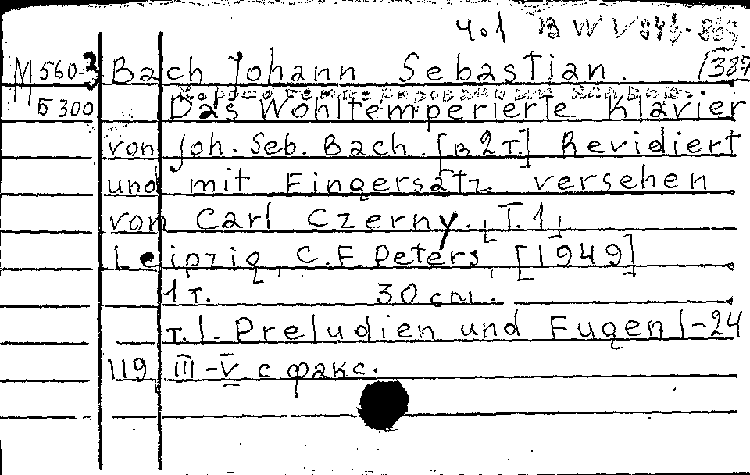 ч.1 BWV 846-869
M 560-3 Bach Johann Sebastian. 1387
Б 300 Das Wohltemperierte Klavier
von Joh. Seb. Bach. [в 2 т.] Revidiert
und mit Fingersatz versehen
von Carl Czerny. [Т. 1]
Leipzig, C. F. Peters, [1949]
1 т. 30 cm.
т. 1. Preludien und Fugen 1-24
119 III-V с факс.